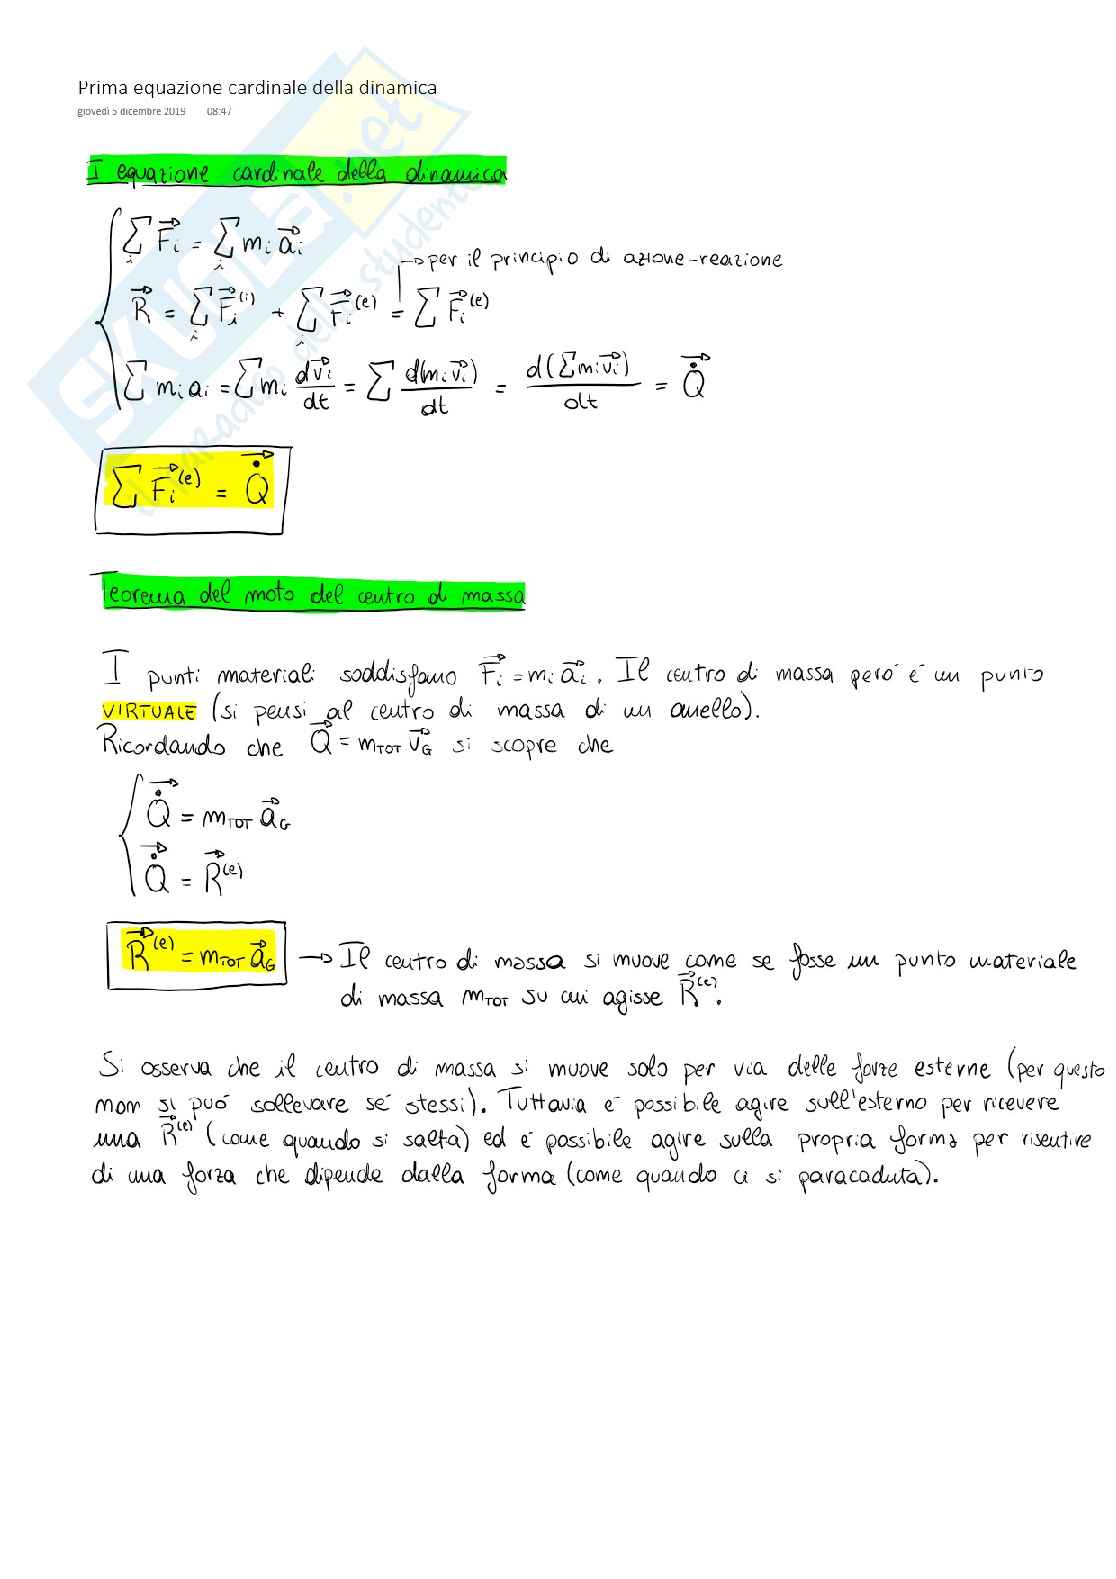 Prima equazione cardinale della dinamica
giovedì 5 dicembre 2019 08:47
I equazione cardinale della dinamica
∑ᵢ F⃗ᵢ = ∑ᵢ mᵢ a⃗ᵢ
→ per il principio di azione-reazione
R⃗ = ∑ᵢ F⃗ᵢ⁽ⁱ⁾ + ∑ᵢ F⃗ᵢ⁽ᵉ⁾ = ∑ F⃗ᵢ⁽ᵉ⁾
∑ mᵢaᵢ = ∑ mᵢ dv⃗ᵢ/dt = ∑ d(mᵢv⃗ᵢ)/dt = d(∑mᵢv⃗ᵢ)/dt = Q̇⃗
∑ F⃗ᵢ⁽ᵉ⁾ = Q̇⃗
Teorema del moto del centro di massa
I punti materiali soddisfano F⃗ᵢ = mᵢ a⃗ᵢ. Il centro di massa però è un punto
VIRTUALE (si pensi al centro di massa di un anello).
Ricordando che Q⃗ = m_TOT v⃗_G si scopre che
Q̇⃗ = m_TOT a⃗_G
Q̇⃗ = R⃗⁽ᵉ⁾
R⃗⁽ᵉ⁾ = m_TOT a⃗_G → Il centro di massa si muove come se fosse un punto materiale
di massa m_TOT su cui agisse R⃗⁽ᵉ⁾.
Si osserva che il centro di massa si muove solo per via delle forze esterne (per questo
non si può sollevare sé stessi). Tuttavia è possibile agire sull'esterno per ricevere
una R⃗⁽ᵉ⁾ (come quando si salta) ed è possibile agire sulla propria forma per risentire
di una forza che dipende dalla forma (come quando ci si paracaduta).
SKUOLA.net
il paradiso dello studente